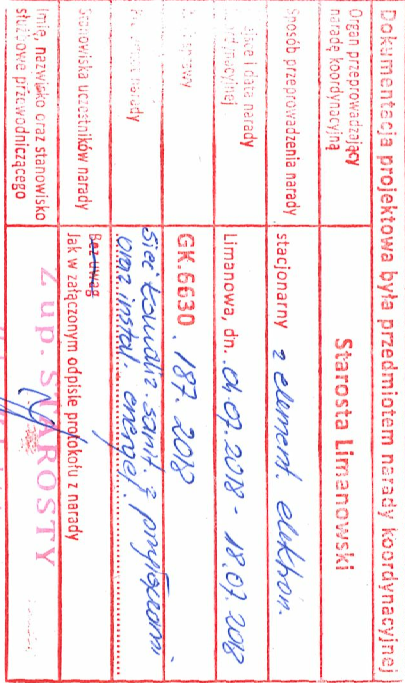 Dokumentacja projektowa była przedmiotem narady koordynacyjnej
Organ przeprowadzający
naradę koordynacyjną
Starosta Limanowski
sposób przeprowadzenia narady
stacjonarny z element. elektron.
i data narady
Limanowa, dn. 04.07.2018 - 18.07.2018
sprawy
GK.6630.187.2018
narady
Sieć kanaliz. sanit. z przyłączami
oraz instal. energet.
Stanowiska uczestników narady
Bez uwag
Jak w załączonym odpisie protokołu z narady
Imię, nazwisko oraz stanowisko
służbowe przewodniczącego
Z up. STAROSTY